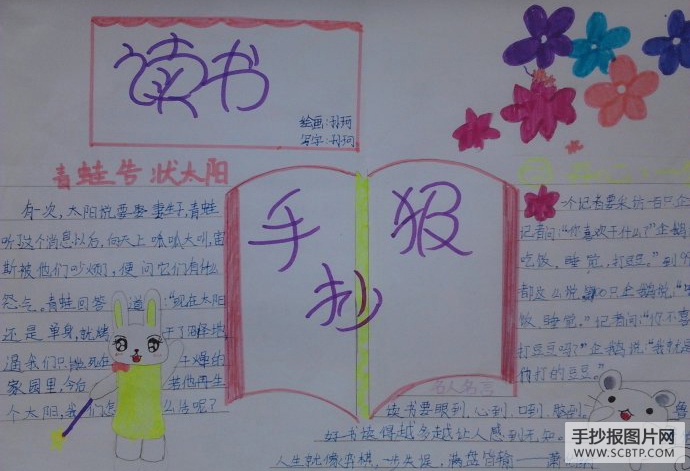 读书
绘画:孙珂
写字:孙珂
青蛙告状太阳
有一次,太阳说要娶妻子,青蛙
听了这个消息以后,向天上呱呱大叫,宙
斯被他们吵烦,便问它们有什么
怨气。青蛙回答道:“现在太阳
还是单身,就
我们只
家园里,今后若他再生
个太阳,我们怎么告呢?
手
抄
报
一个记者要采访一百只企
记者问:“你喜欢干什么?”企鹅
吃饭,睡觉,打豆豆。”到9
都这么说,只企鹅说:“
饭,睡觉。”记者问:“你不喜
打豆豆吗?”企鹅说:“我就是
打的豆豆。”
名人名言
读书要眼到,心到,口到,脑到。鲁
好书读得越多越让人感到无知。
人生就像弈棋,一步失误,满盘皆输——
手抄报图片网
WWW.SCBTP.COM